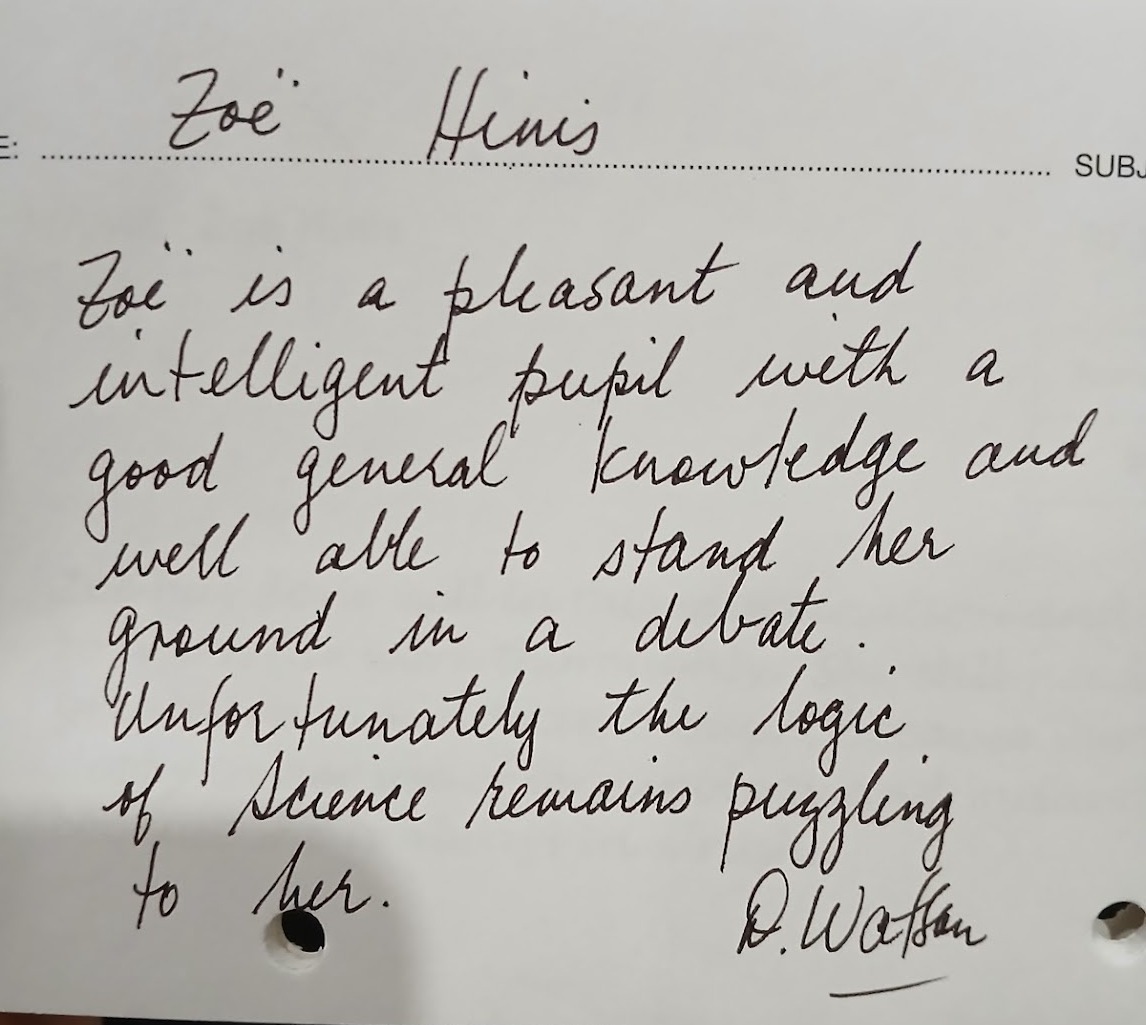 Zoë Hinis
E: SUBJ
Zoë is a pleasant and
intelligent pupil with a
good general knowledge and
well able to stand her
ground in a debate.
Unfortunately the logic
of Science remains puzzling
to her.
D. Watson